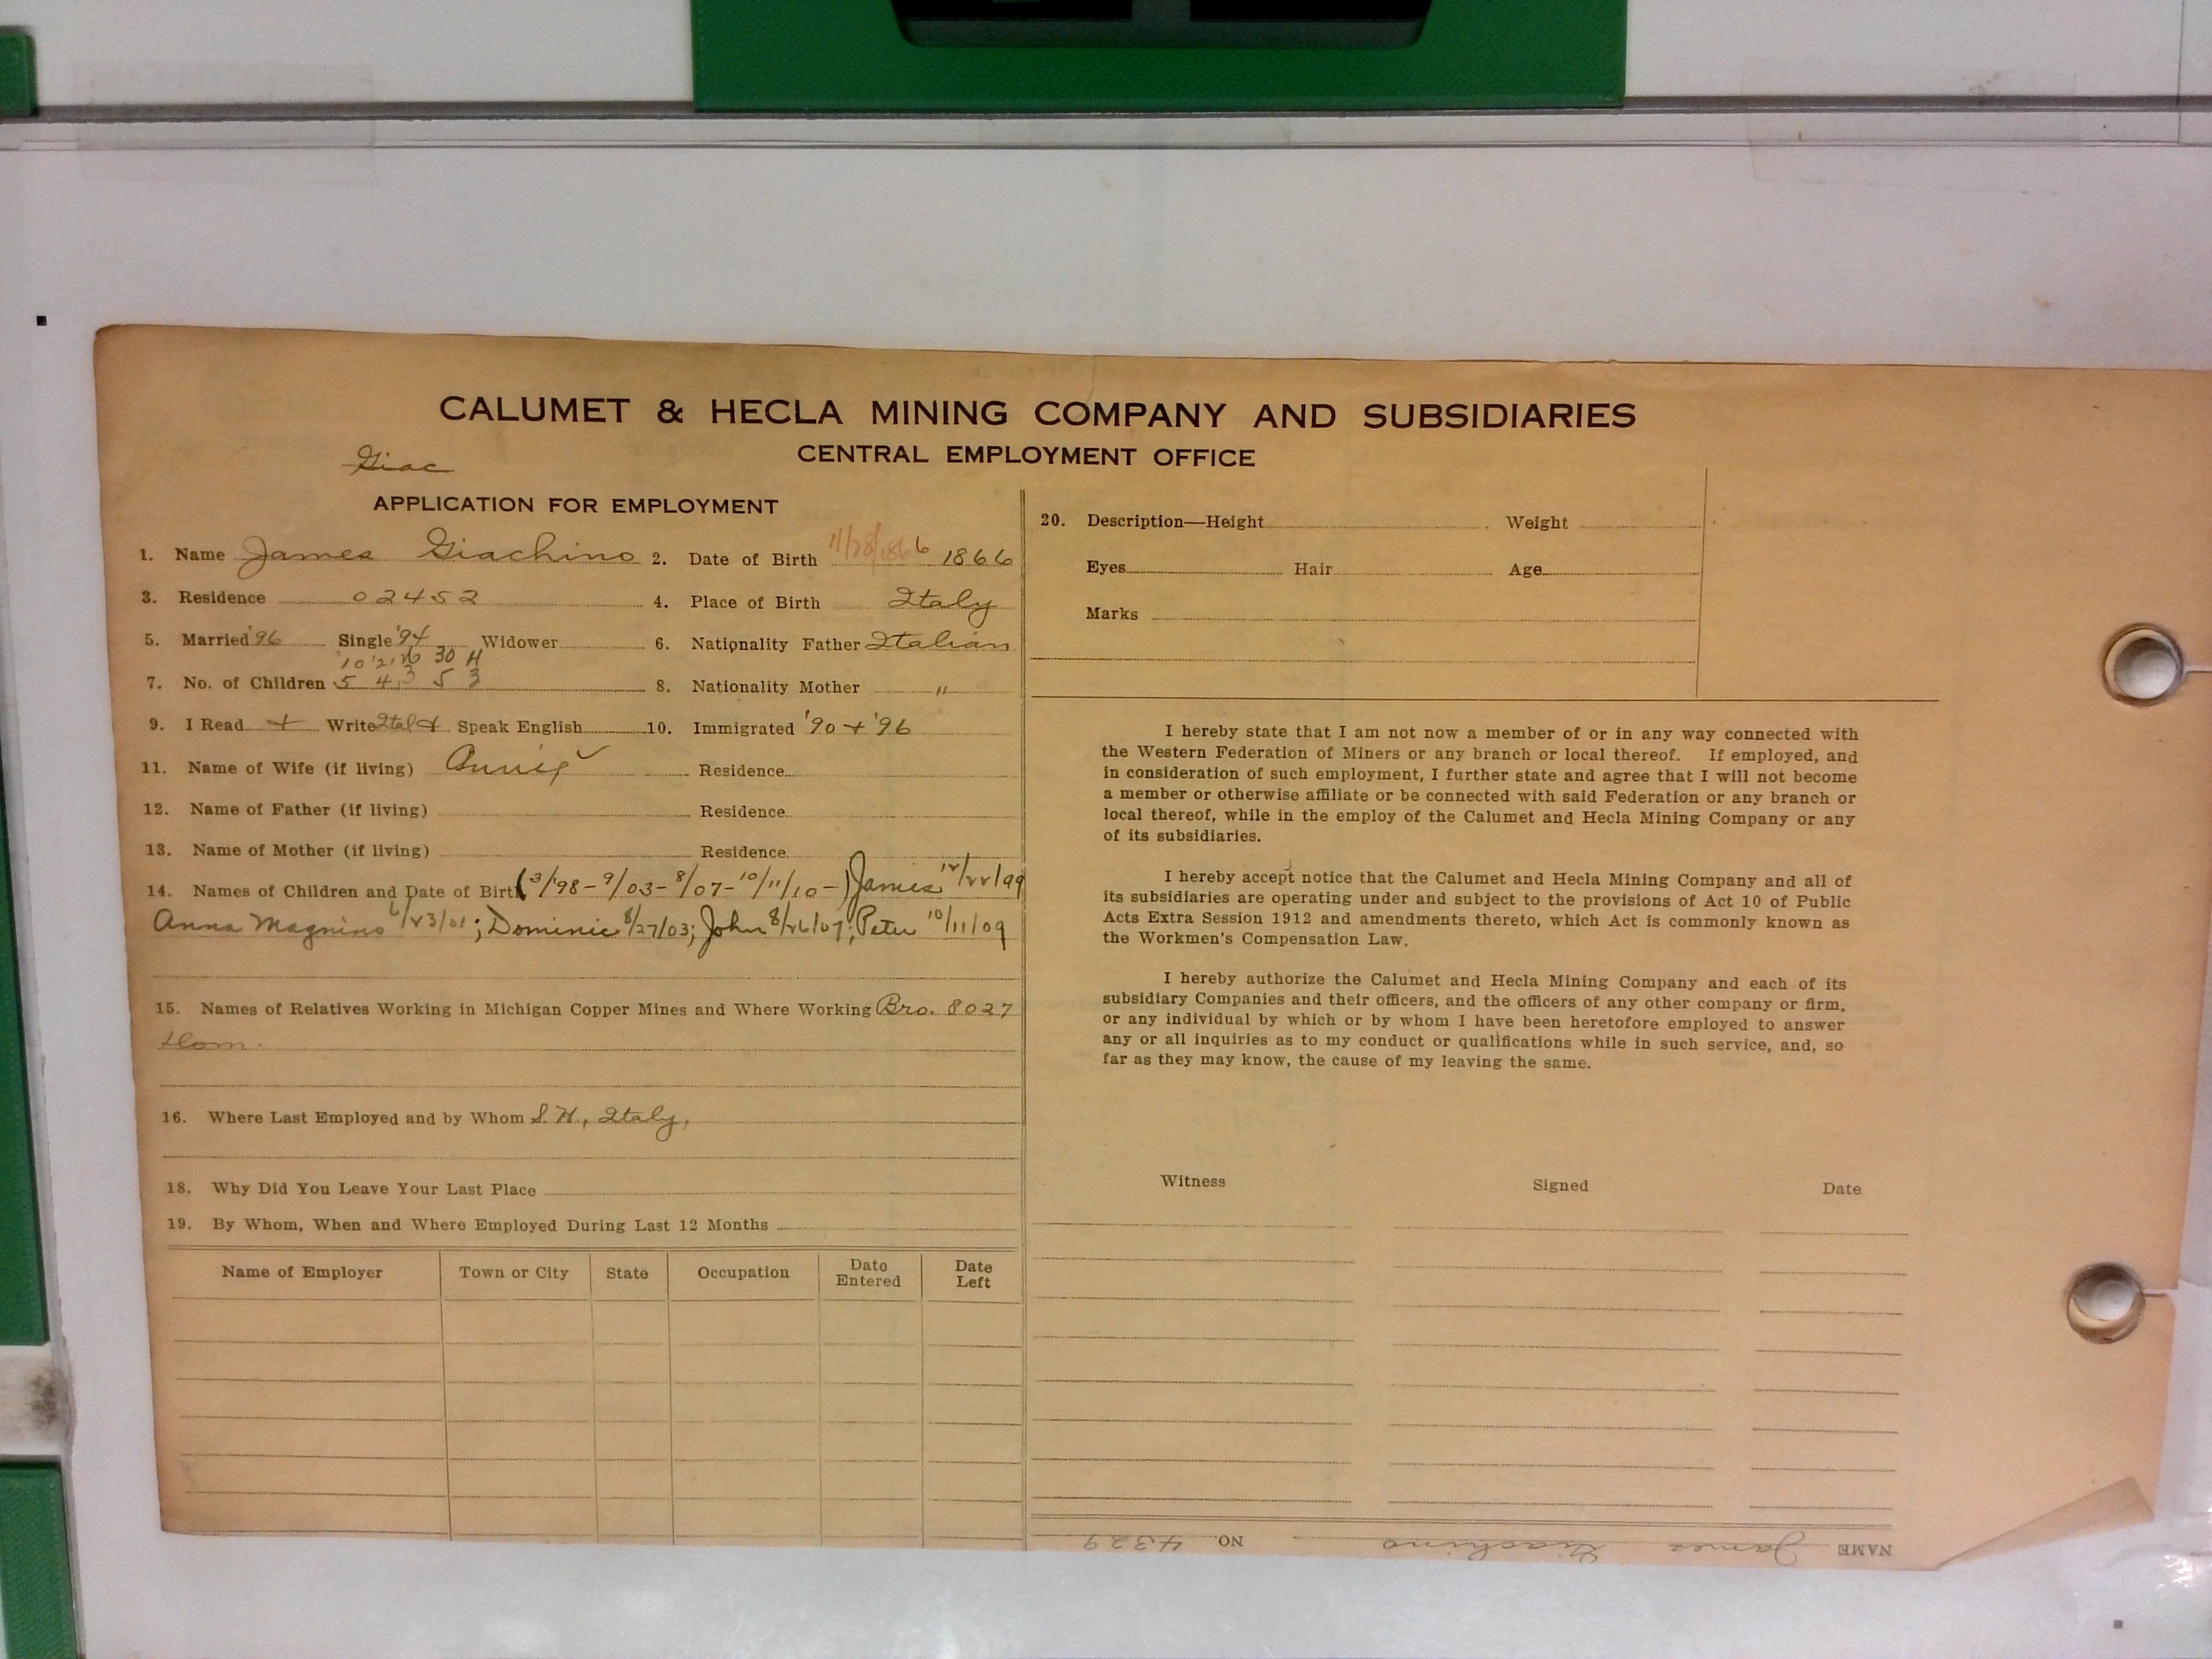 CALUMET & HECLA MINING COMPANY AND SUBSIDIARIES
CENTRAL EMPLOYMENT OFFICE
Giac
APPLICATION FOR EMPLOYMENT
1. Name James Giachino 2. Date of Birth 11/28/1866 1866
3. Residence 02452 4. Place of Birth Italy
5. Married '96 Single '94 Widower 6. Nationality Father Italian
'10 '21 30
7. No. of Children 5 4 3 5 3 8. Nationality Mother "
9. I Read + Write Ital + Speak English 10. Immigrated '90 + '96
11. Name of Wife (if living) Annie Residence
12. Name of Father (if living) Residence
13. Name of Mother (if living) Residence
14. Names of Children and Date of Birth (3/'98 - 9/03 - 8/07 - 10/11/10 -) James 12/22/99
Anna Magnino 6/23/01; Dominic 8/27/03; John 8/26/07; Peter 10/11/09
15. Names of Relatives Working in Michigan Copper Mines and Where Working Bro. 8027
Dom.
16. Where Last Employed and by Whom S. H., Italy,
18. Why Did You Leave Your Last Place
19. By Whom, When and Where Employed During Last 12 Months
Name of Employer Town or City State Occupation Date Entered Date Left
20. Description—Height Weight
Eyes Hair Age
Marks
I hereby state that I am not now a member of or in any way connected with
the Western Federation of Miners or any branch or local thereof. If employed, and
in consideration of such employment, I further state and agree that I will not become
a member or otherwise affiliate or be connected with said Federation or any branch or
local thereof, while in the employ of the Calumet and Hecla Mining Company or any
of its subsidiaries.
I hereby accept notice that the Calumet and Hecla Mining Company and all of
its subsidiaries are operating under and subject to the provisions of Act 10 of Public
Acts Extra Session 1912 and amendments thereto, which Act is commonly known as
the Workmen's Compensation Law.
I hereby authorize the Calumet and Hecla Mining Company and each of its
subsidiary Companies and their officers, and the officers of any other company or firm,
or any individual by which or by whom I have been heretofore employed to answer
any or all inquiries as to my conduct or qualifications while in such service, and, so
far as they may know, the cause of my leaving the same.
Witness Signed Date
NAME James Giachino NO. 4329